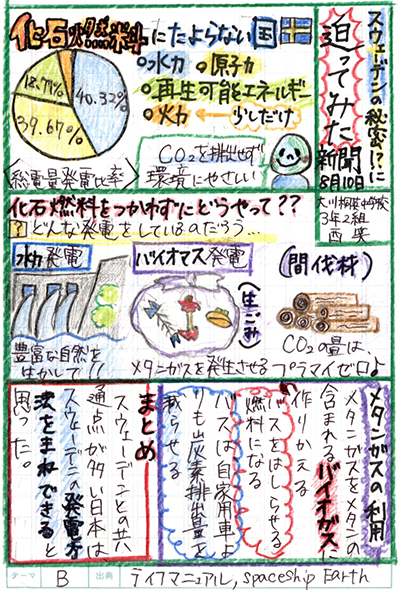 スウェーデンの秘密!?に
迫ってみた
新聞
8月10日
3年2組
化石燃料にたよらない国
○水力 ○原子力
○再生可能エネルギー
○火力 ← 少しだけ
18.77%
40.32%
39.67%
〈総電量発電比率〉
CO2を排出せず
環境にやさしい
化石燃料をつかわずにどうやって??
?どんな発電をしているのだろう…
水力発電
豊富な自然を
生かして!!
バイオマス発電
(生ごみ)
メタンガスを発生させる
(間伐材)
CO2の量は
プラマイゼロ♪
メタンガスの利用
メタンガスをメタンの
含まれるバイオガスに
作りかえる
バスをはしらせる
燃料になる
バスは自家用車よ
りも炭素排出量を
減らせる
まとめ
スウェーデンとの共
通点が多い日本は
スウェーデンの発電方
法をまねできると
思った。
テーマ B 出典 ライフマニュアル, spaceship Earth